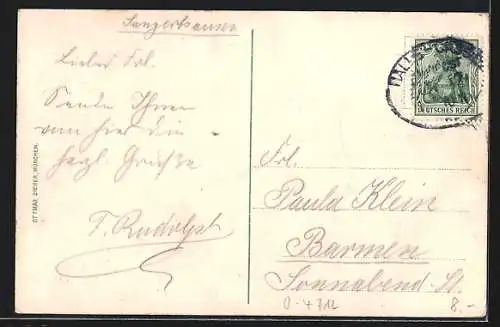 Sangerhausen
Liebes Frl.
Sende Ihnen
von hier die
herzl. Grüsse
F. Rudolph
OTTMAR ZIEHER, MÜNCHEN.
DEUTSCHES REICH
Frl.
Paula Klein
Barmen
Sonnabend-St.
0-4312
8.-